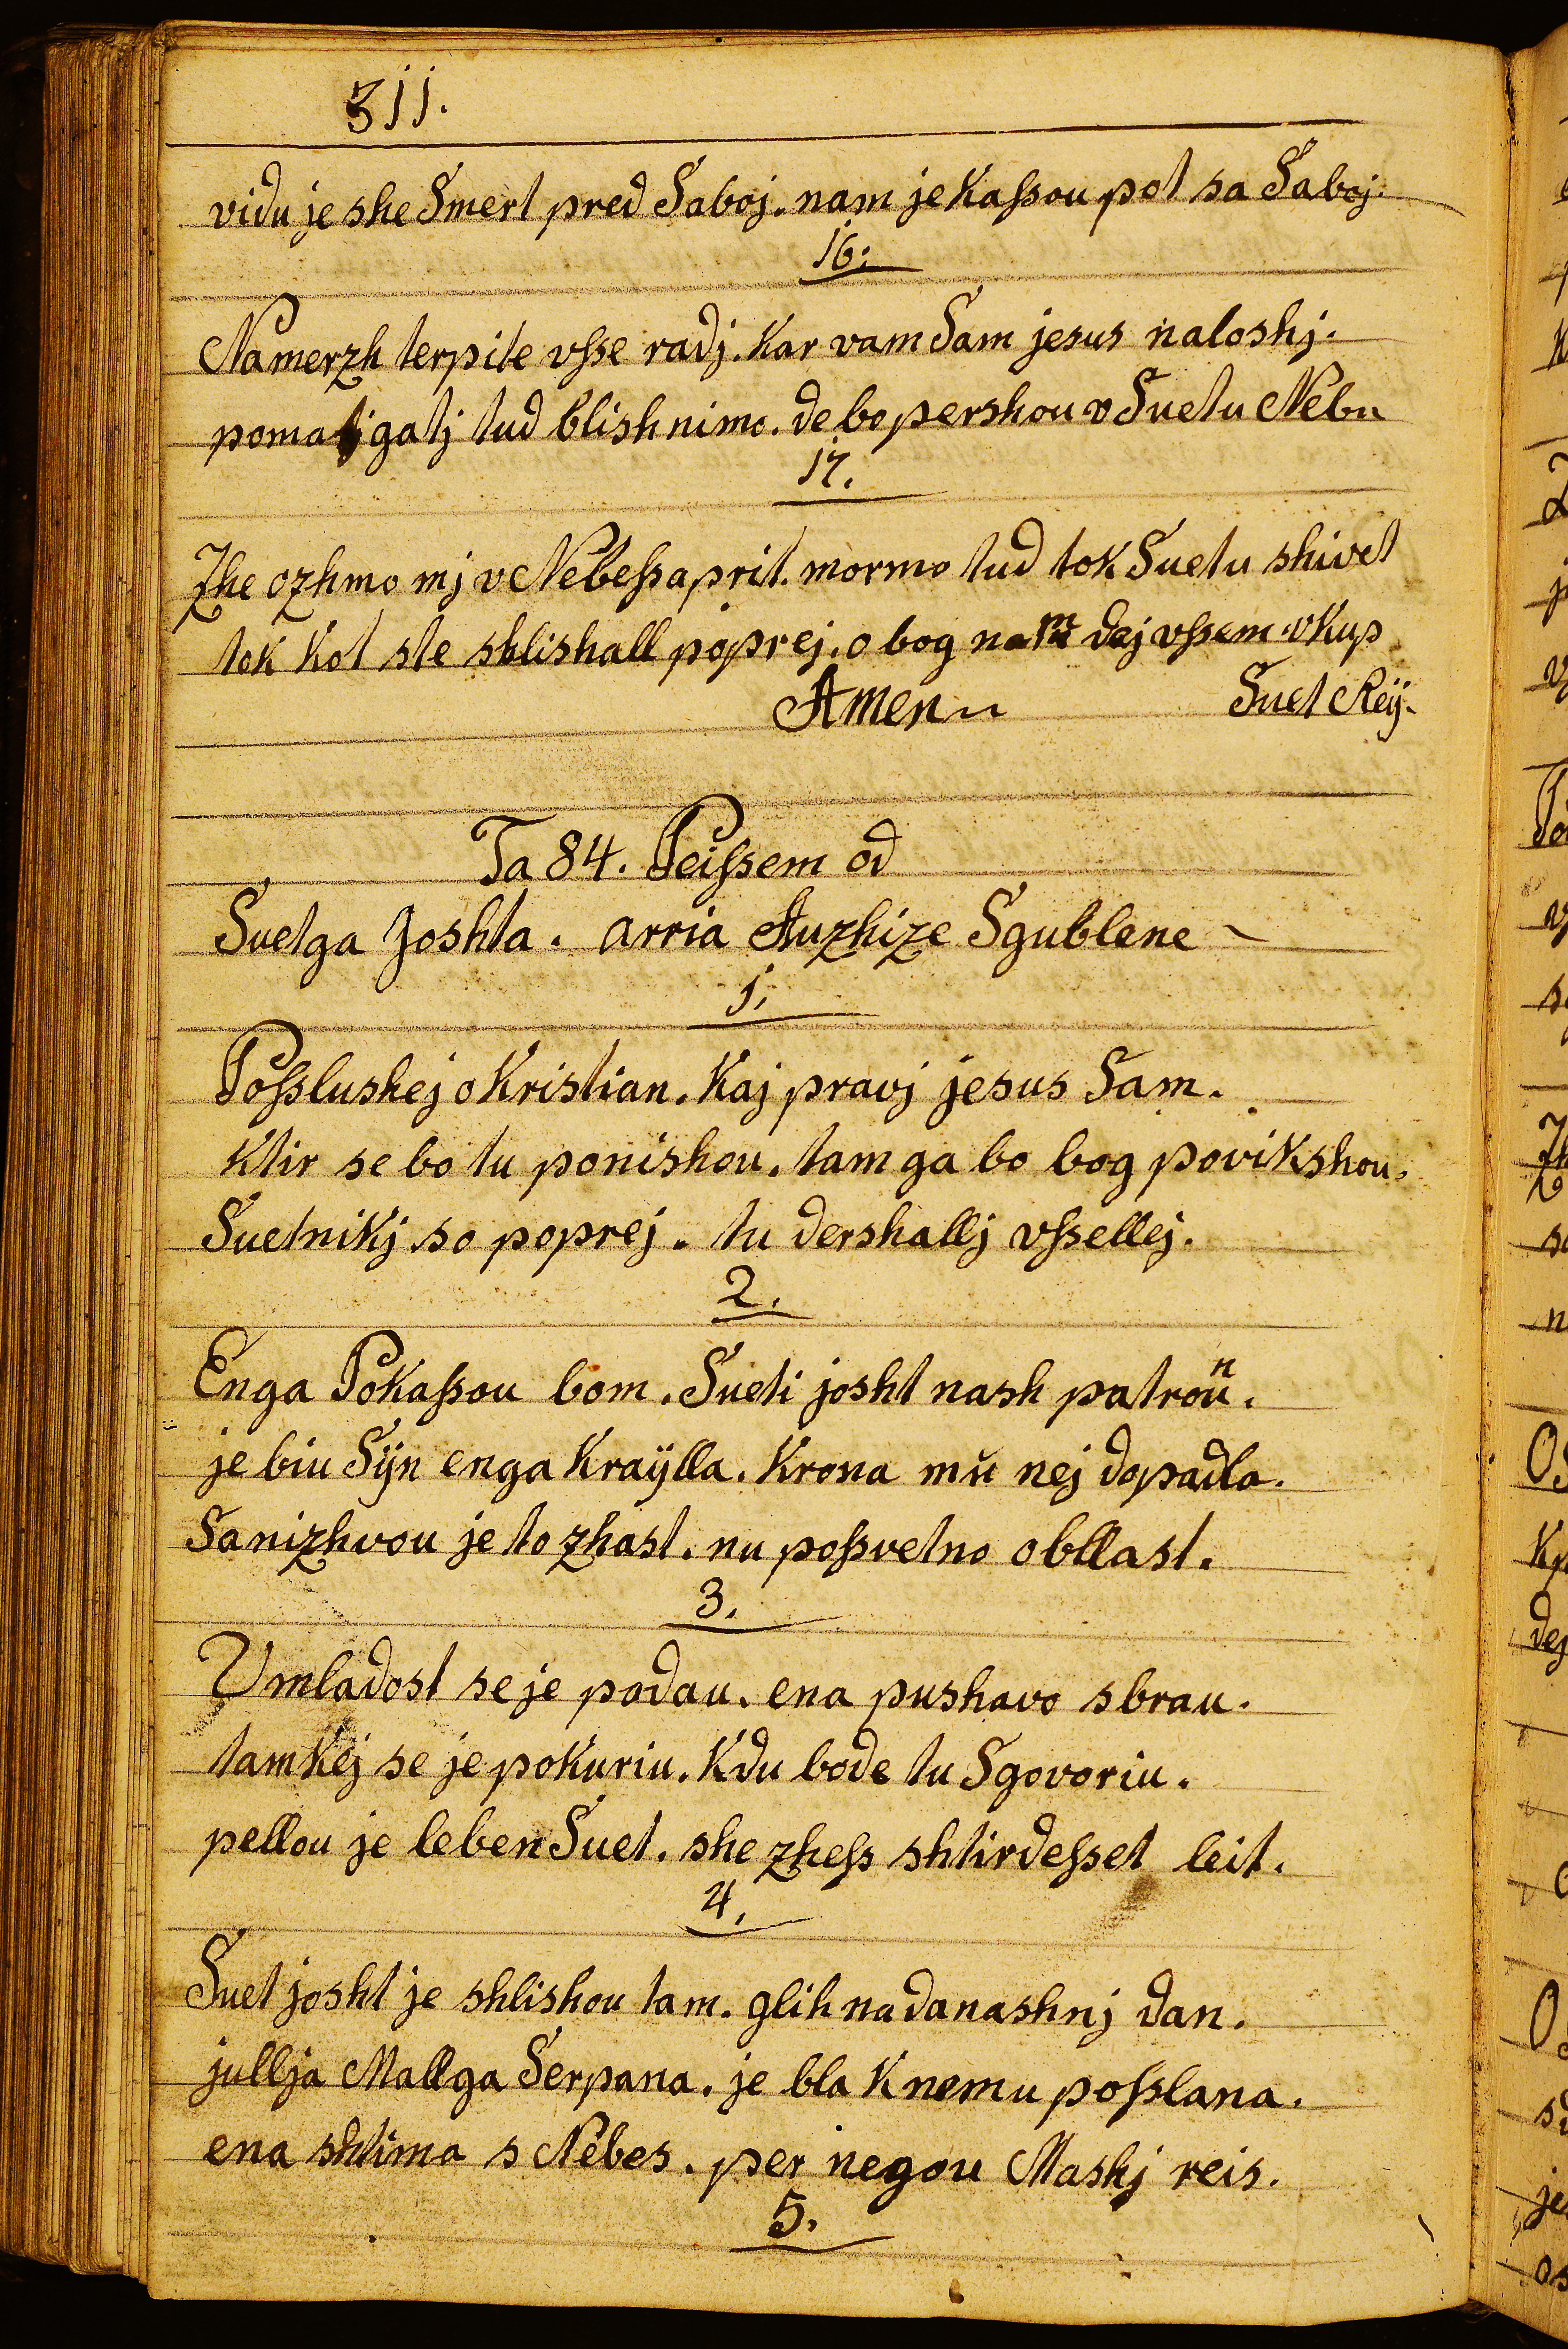 311.
vidu je she Smert pred Saboj. nam je Kaſsou pot sa Saboj.
16.
Namerzh terpite vſse radj. Kar vam Sam jesus naloshj.
pomagatj tud blishnimo. de bo pershou v Suetu Nebu
17.
Zhe ozhmo mj v Nebeſsa prit. mormo tud tok Suetu shivet
tok Kot ste shlishall poprej. o bog nam dej vſsem vKup
Amen Suet Reÿ.
Ta 84. Peiſsem od
Suetga Joshta. arria Auzhize Sgublene
1.
Poſslushej o Kristian. Kaj pravj jesus Sam.
Ktir se bo tu ponishou. tam ga bo bog povikshou.
Suetnikj so poprej. tu dershallj vſsellej.
2.
Enga Pokaſsou bom. Sueti josht nash patron.
je biu Sÿn enga Kraÿlla. Krona mŭ nej dopadla.
Sanizhvou je to zhast. nu poſsvetno obllast.
3.
Vmladost se je podau. ena pushavo sbrau.
tamkej se je pokuriu. Kdu bode tu Sgovoriu.
pellou je leben Suet. she zheſs shtirdeſset leit.
4.
Suet josht je shlishou tam. glih na danashnj dan.
jullja Mallga Serpana. je bla K nemu poſslana.
ena shtima s Nebes. per negou Mashj reis.
5.